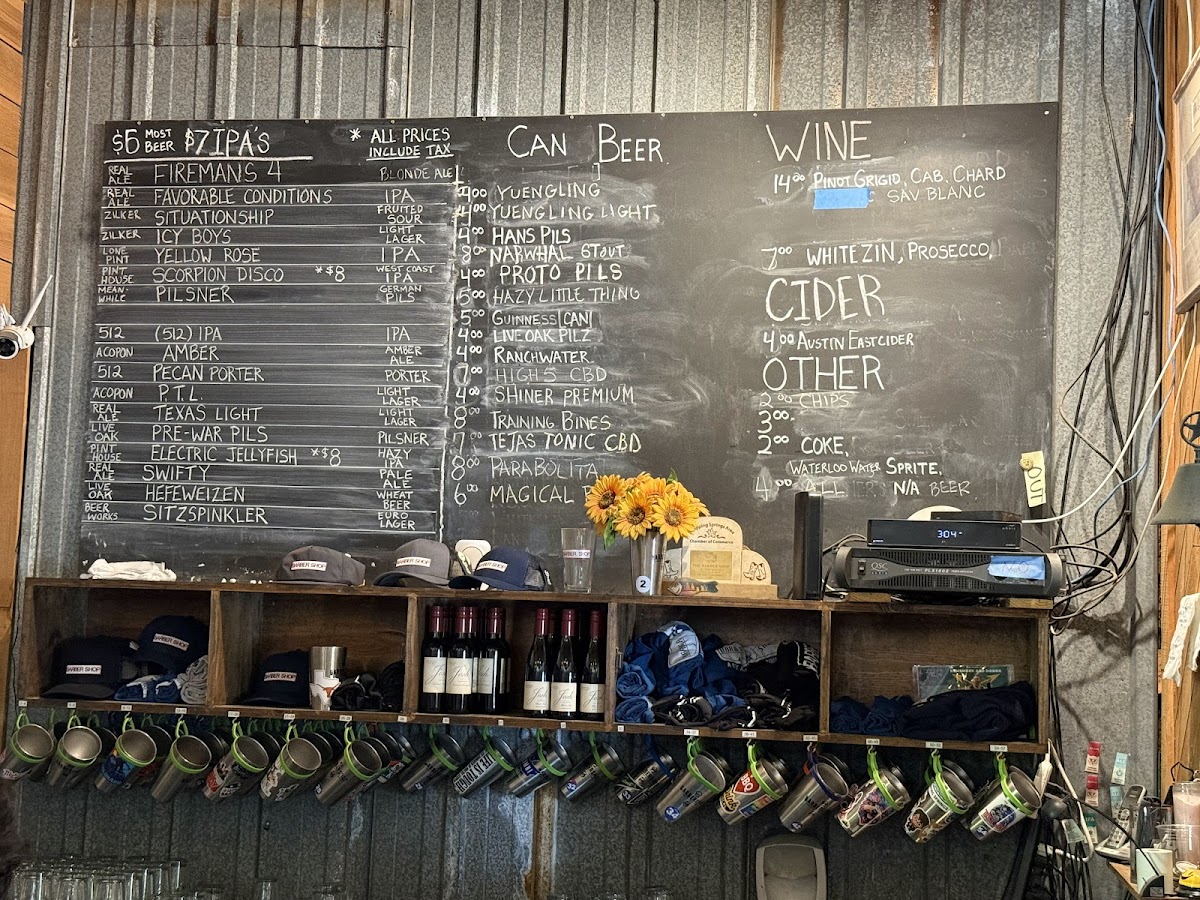 $6 MOST BEER $7 IPA'S
* ALL PRICES INCLUDE TAX
REAL ALE FIREMAN'S 4 BLONDE ALE
REAL ALE FAVORABLE CONDITIONS IPA
ZILKER SITUATIONSHIP FRUITED SOUR
ZILKER ICY BOYS LIGHT LAGER
LONE PINT YELLOW ROSE IPA
PINT HOUSE SCORPION DISCO *$8 WEST COAST IPA
MEAN-WHILE PILSNER GERMAN PILS
512 (512) IPA IPA
ACOPON AMBER AMBER ALE
512 PECAN PORTER PORTER
ACOPON P.T.L. LIGHT LAGER
REAL ALE TEXAS LIGHT LIGHT LAGER
LIVE OAK PRE-WAR PILS PILSNER
PINT HOUSE ELECTRIC JELLYFISH *$8 HAZY IPA
REAL ALE SWIFTY PALE ALE
LIVE OAK HEFEWEIZEN WHEAT BEER
BEER WORKS SITZSPINKLER EURO LAGER
CAN BEER
4.00 YUENGLING
4.00 YUENGLING LIGHT
4.00 HANS PILS
8.00 NARWHAL STOUT
4.00 PROTO PILS
5.00 HAZY LITTLE THING
5.00 GUINNESS (CAN)
4.00 LIVE OAK PILZ
4.00 RANCHWATER
HIGH 5 CBD
4.00 SHINER PREMIUM
8.00 TRAINING BINES
7.00 TEJAS TONIC CBD
8.00 PARABOLITA
6.00 MAGICAL
WINE
14.00 PINOT GRIGIO, CAB, CHARD
SAV BLANC
7.00 WHITE ZIN, PROSECCO,
CIDER
4.00 AUSTIN EASTCIDER
OTHER
2.00 CHIPS
3.00
2.00 COKE,
WATERLOO WATER SPRITE,
4.00 N/A BEER
OUT
BARBER SHOP
BARBER SHOP
BARBER SHOP
Dripping Springs Area
Chamber of Commerce
2
304
QSC
BARBER SHOP
BARBER SHOP
BARBER SHOP
BBQ